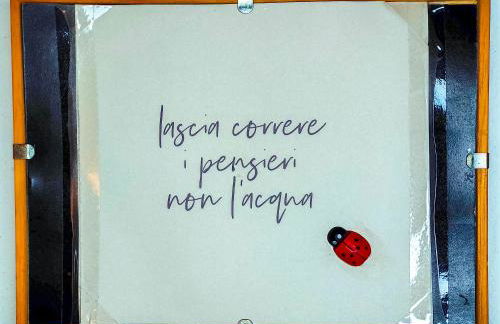 lascia correre
i pensieri
non l'acqua